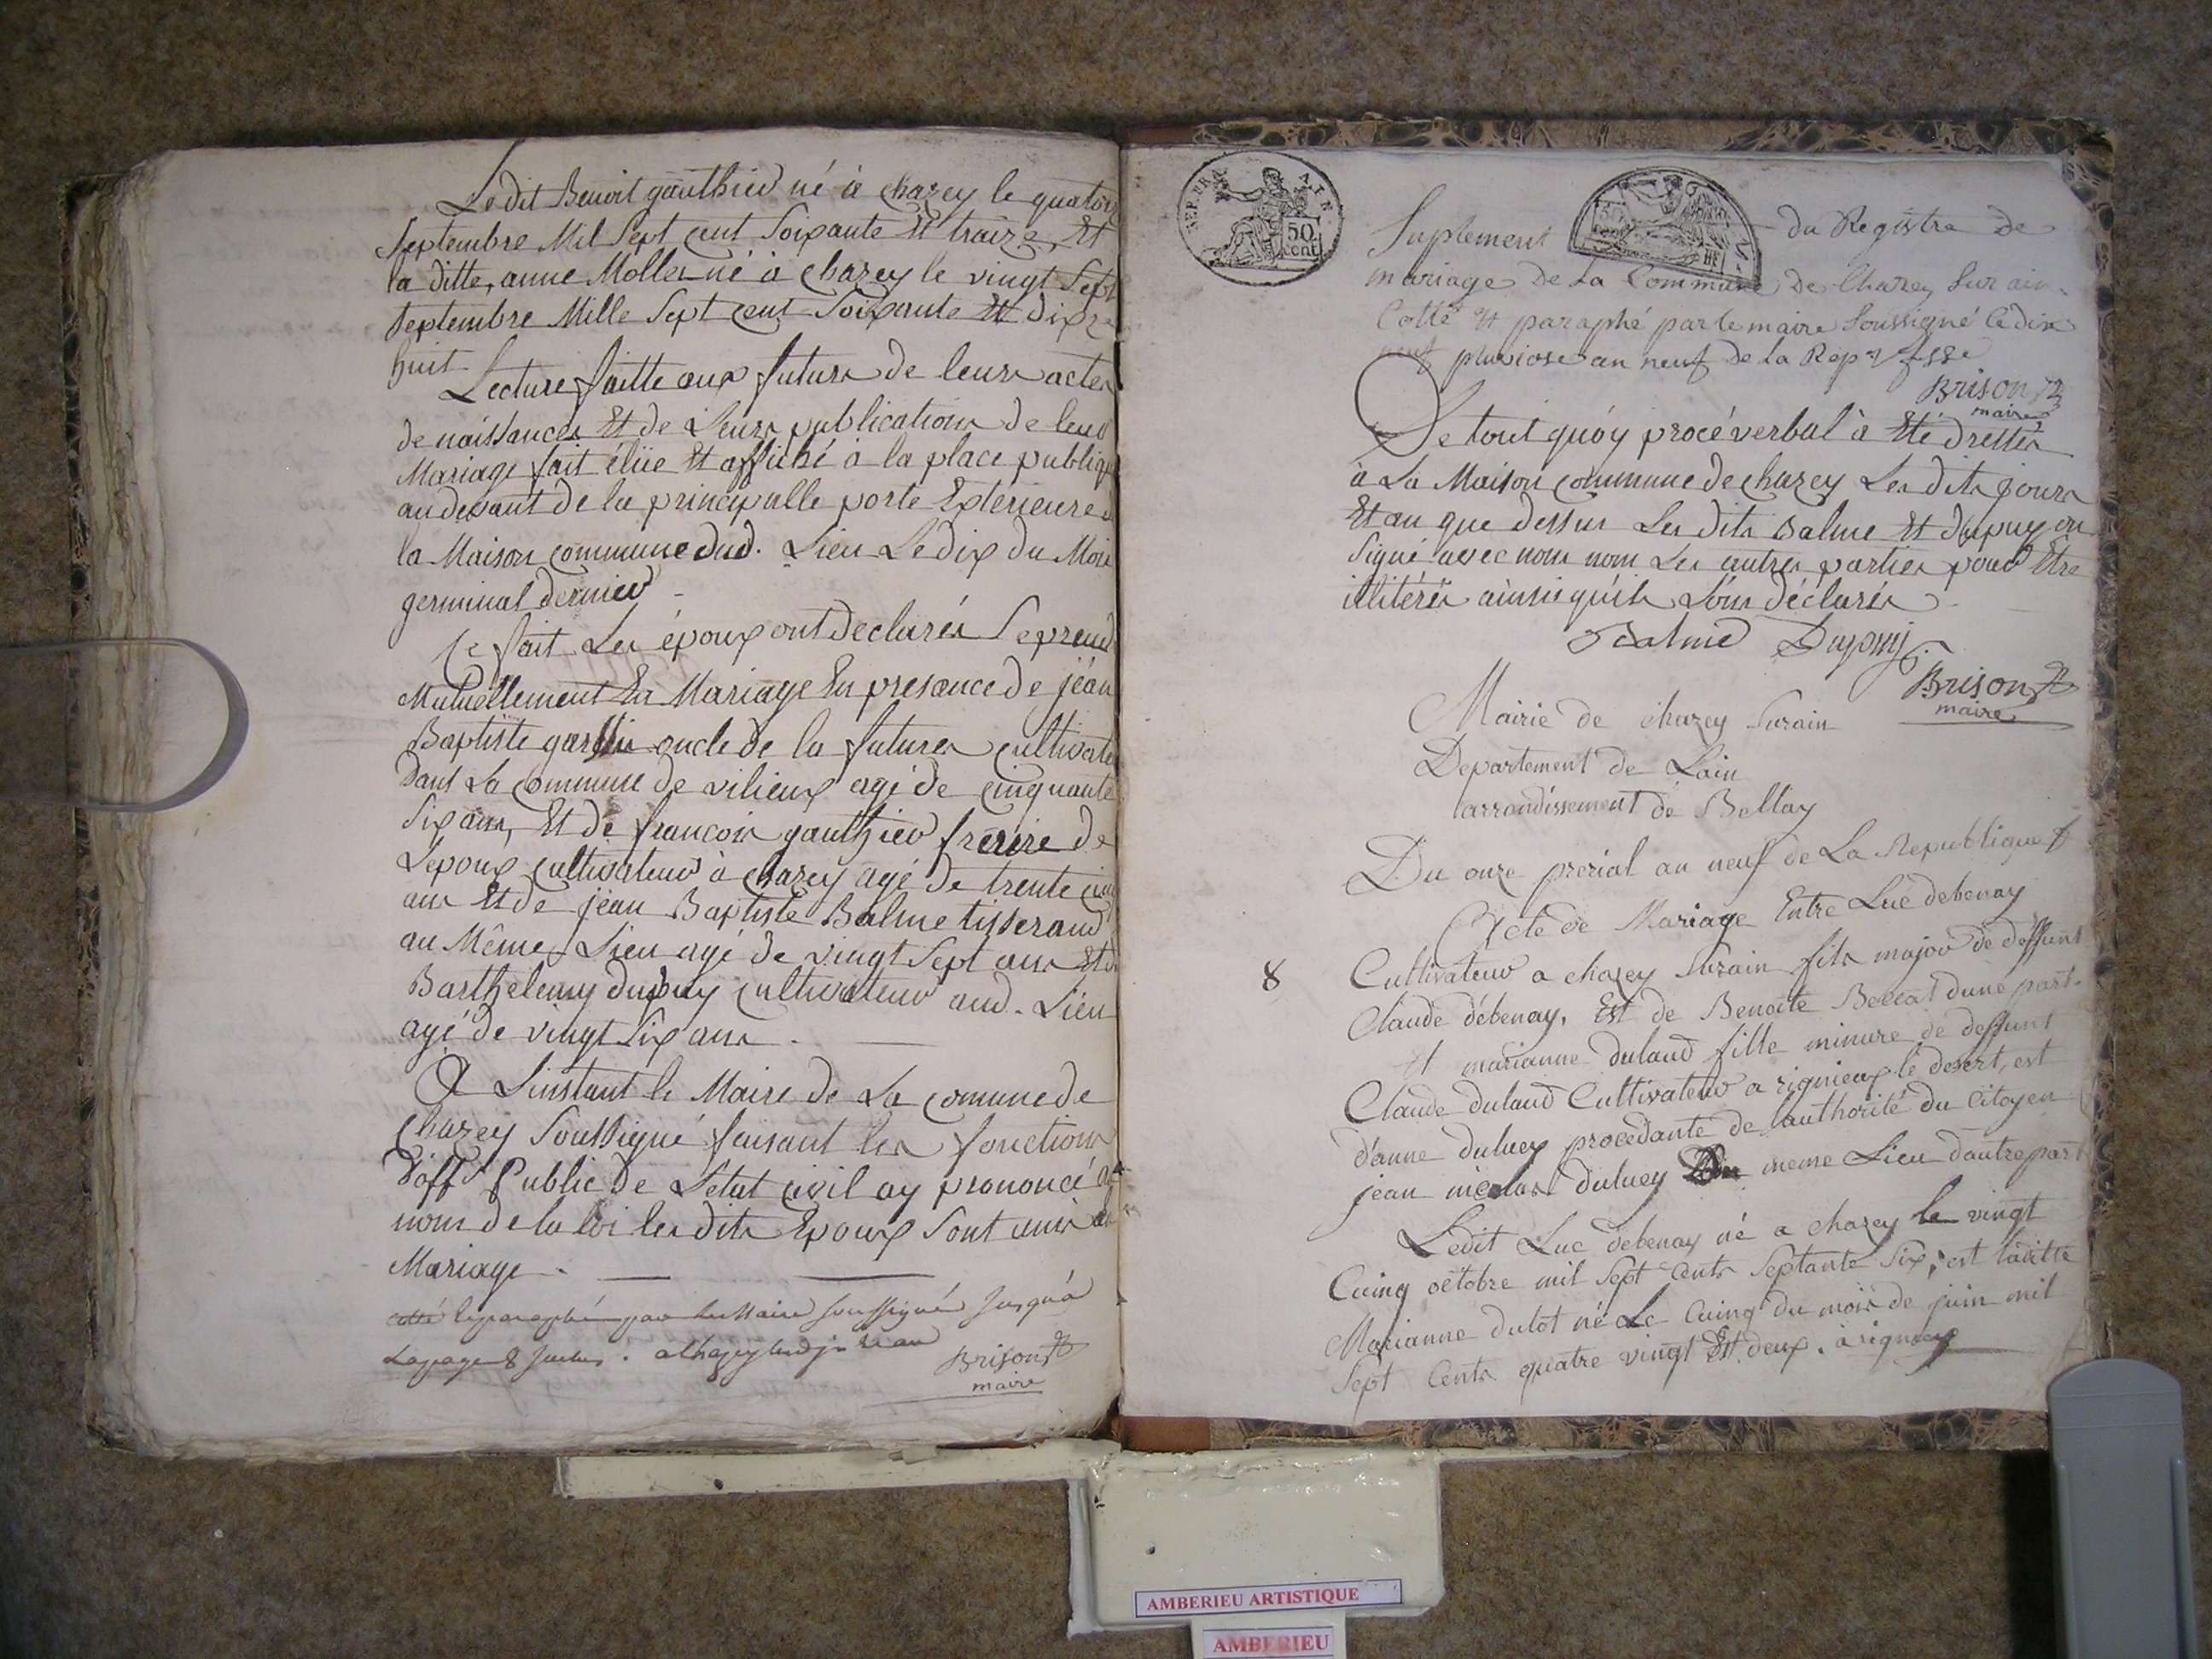 Ledit Benoit gauthier né à chazey le quatorz
septembre Mil Sept cent Soixante Et traize, Et
la ditte, anne Moller né à chazey le vingt Sept
septembre Mille Sept cent Soixante Et dix
huit
Lecture faitte aux futurs de leurs actes
de naissances Et de Leurs publications de leur
Mariage fait élüe Et affiché à la place publiq
au devant de la principalle porte Exterieure d
la Maison commune dud. Lieu Le dix du Mois
germinal dernier
Ce fait Les époux ont declarés Se prend
Mutuellement En Mariage En presance de jéan
Baptiste oncle de la future cultivate
Dans La commune de vilieux agé de cinquante
Six ans, Et de francois gauthier frerire de
L'époux cultivateur à chazey agé de trente cinq
ans Et de jéan Baptiste Balme tisserand
au Même Lieu agé de vingt Sept ans Et d
Barthelemy dupuy cultivateur aud. Lieu
agé de vingt Six ans.
A Linstant le Maire de La comune de
Chazey Soussigné faisant les fonctions
d'off Public de Letat civil ay prononcé au
nom de la loi les dits Epoux Sont unis en
Mariage.
cotté le paraphé par le Maire soussigné Jusqu'à
La page 8 . a Chazey
Brison
maire
REP. FRA. 50 cent
Suplement du Registre de
mariage de La Commune de Chazey Sur ain
Cotté Et paraphé par le maire Soussigné Ce dix
neuf pluviose an neuf de La Rep
Brison
maire
De tout quóy procé verbal à Eté dressés
à La Maison commune de chazey Les dits jours
Et an que dessus Les dits Balme Et dupuy on
Signé avec nous nom Les autres parties pour Etre
illitérés ainsie quils Lons déclarés
Balme Dupuy
Brison
maire
Mairie de chazey Surain
Departement de Lain
arrondissement de Bellay
Du onze prerial an neuf de La Republique f
Acte de Mariage Entre Luc debenay
8 Cultivateur a chazey Surain fils major de deffunt
Claude débenay, Est de Benoite Beccat dune part.
Et marianne dulaud fille minure de deffunt
Claude dulaud Cultivateur a rignieux le desert, est
d'anne duluey procedante de lauthorité du Citoyen
jean nicolas duluey Du meme Lieu dautre part
Ledit Luc debenay né a chazey le vingt
Cuinq octobre mil Sept Cents Septante Six, est laditte
Marianne dulot né Le Cuinq du mois de juin mil
Sept Cents quatre vingt Est deux. à rignieux
AMBERIEU ARTISTIQUE
AMBERIEU